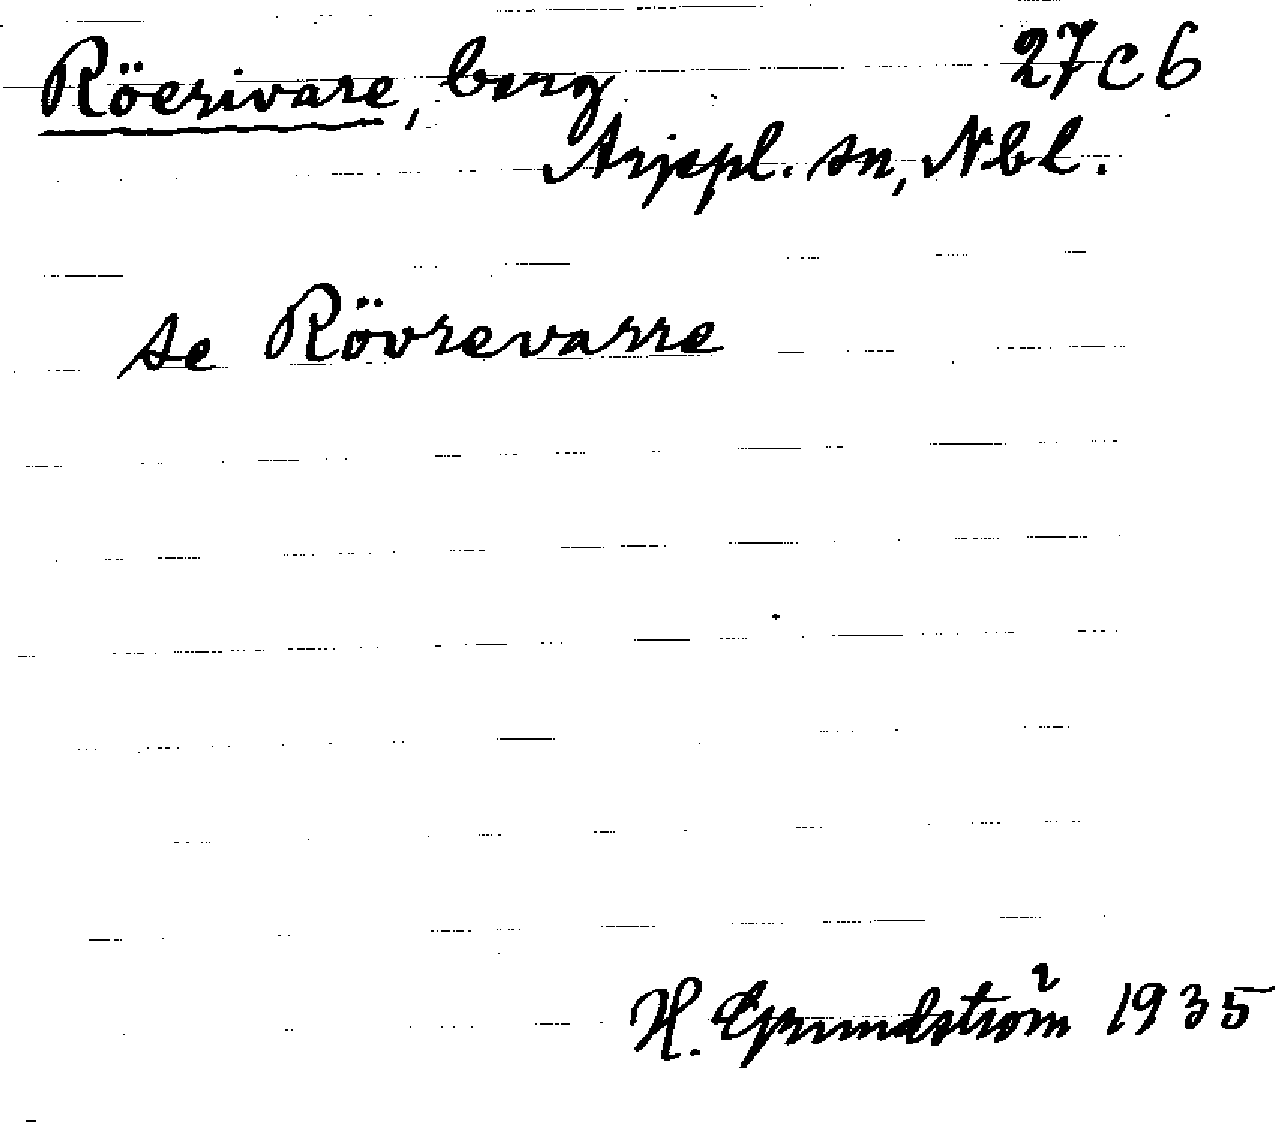 Röerivare, berg 27 C 6
Arjepl. sn, Nbl.
se Rövrevarre
H. Grundström 1935